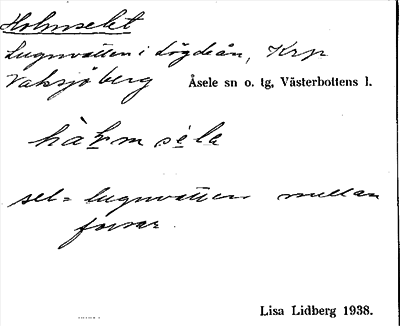 Holmselet
Lugnvatten i Lögdeån, Krp
Vaksjöberg Åsele sn o. tg, Västerbottens l.
sel = lugnvatten mellan
forsar.
Lisa Lidberg 1938.